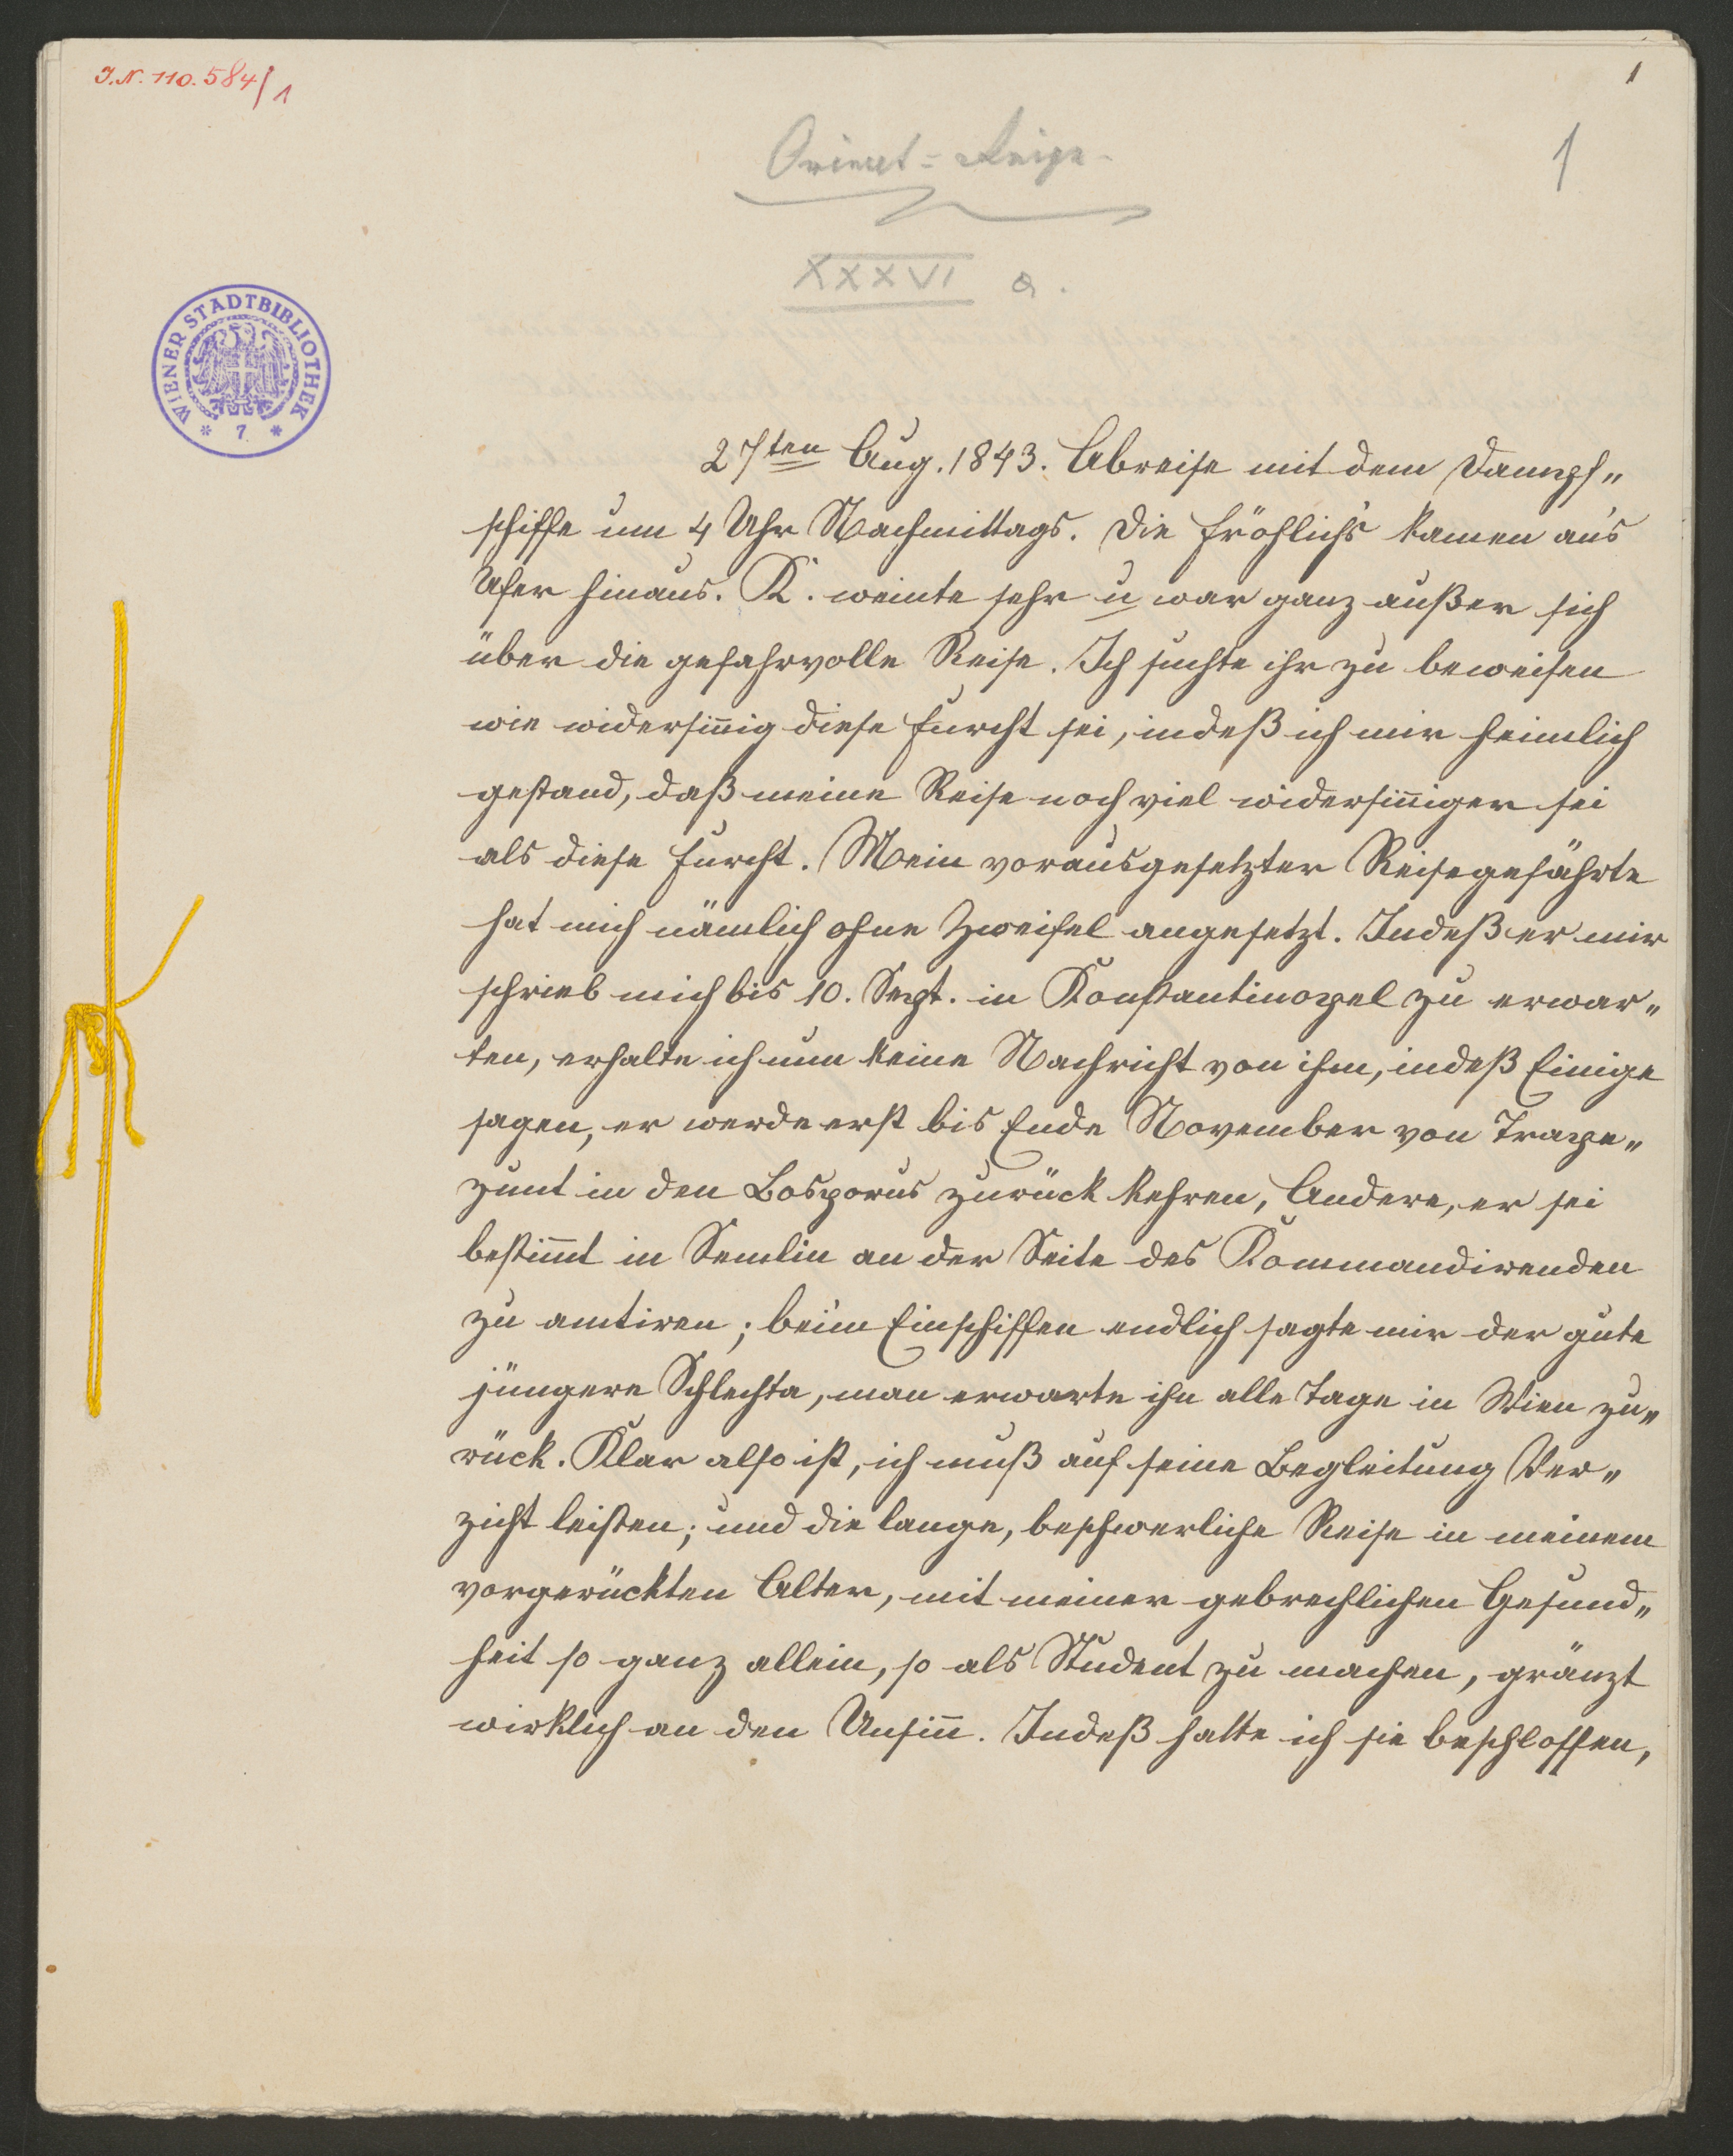 J.N. 110.584/1
1
1
Orient-Reise.
XXXVI a.
WIENER STADTBIBLIOTHEK
* 7 *
27ten Aug. 1843. Abreise mit dem Dampf„
schiffe um 4 Uhr Nachmittags. Die Fröhlichs kamen an's
Ufer hinaus. K. weinte sehr u war ganz außer sich
über die gefahrvolle Reise. Ich suchte ihr zu beweisen
wie widersin̄ig diese Furcht sei, indeß ich mir heimlich
gestand, daß meine Reise noch viel widersin̄iger sei
als diese Furcht. Mein vorausgesetzter Reisegefährte
hat mich nämlich ohne Zweifel angesetzt. Indeß er mir
schrieb mich bis 10. Sept. in Konstantinopel zu erwar„
ten, erhalte ich nun keine Nachricht von ihm, indeß Einige
sagen, er werde erst bis Ende November von Trape„
zunt in den Bosporus zurück kehren, Andere, er sei
bestim̄t in Semlin an der Seite des Kommandirenden
zu amtiren; beim Einschiffen endlich sagte mir der gute
jüngere Schlechta, man erwarte ihn alle Tage in Wien zu„
rück. Klar also ist, ich muß auf seine Begleitung Ver„
zicht leisten; und die lange, beschwerliche Reise in meinem
vorgerückten Alter, mit meiner gebrechlichen Gesund„
heit so ganz allein, so als Student zu machen, gränzt
wirklich an den Unsin̄. Indeß hatte ich sie beschlossen,